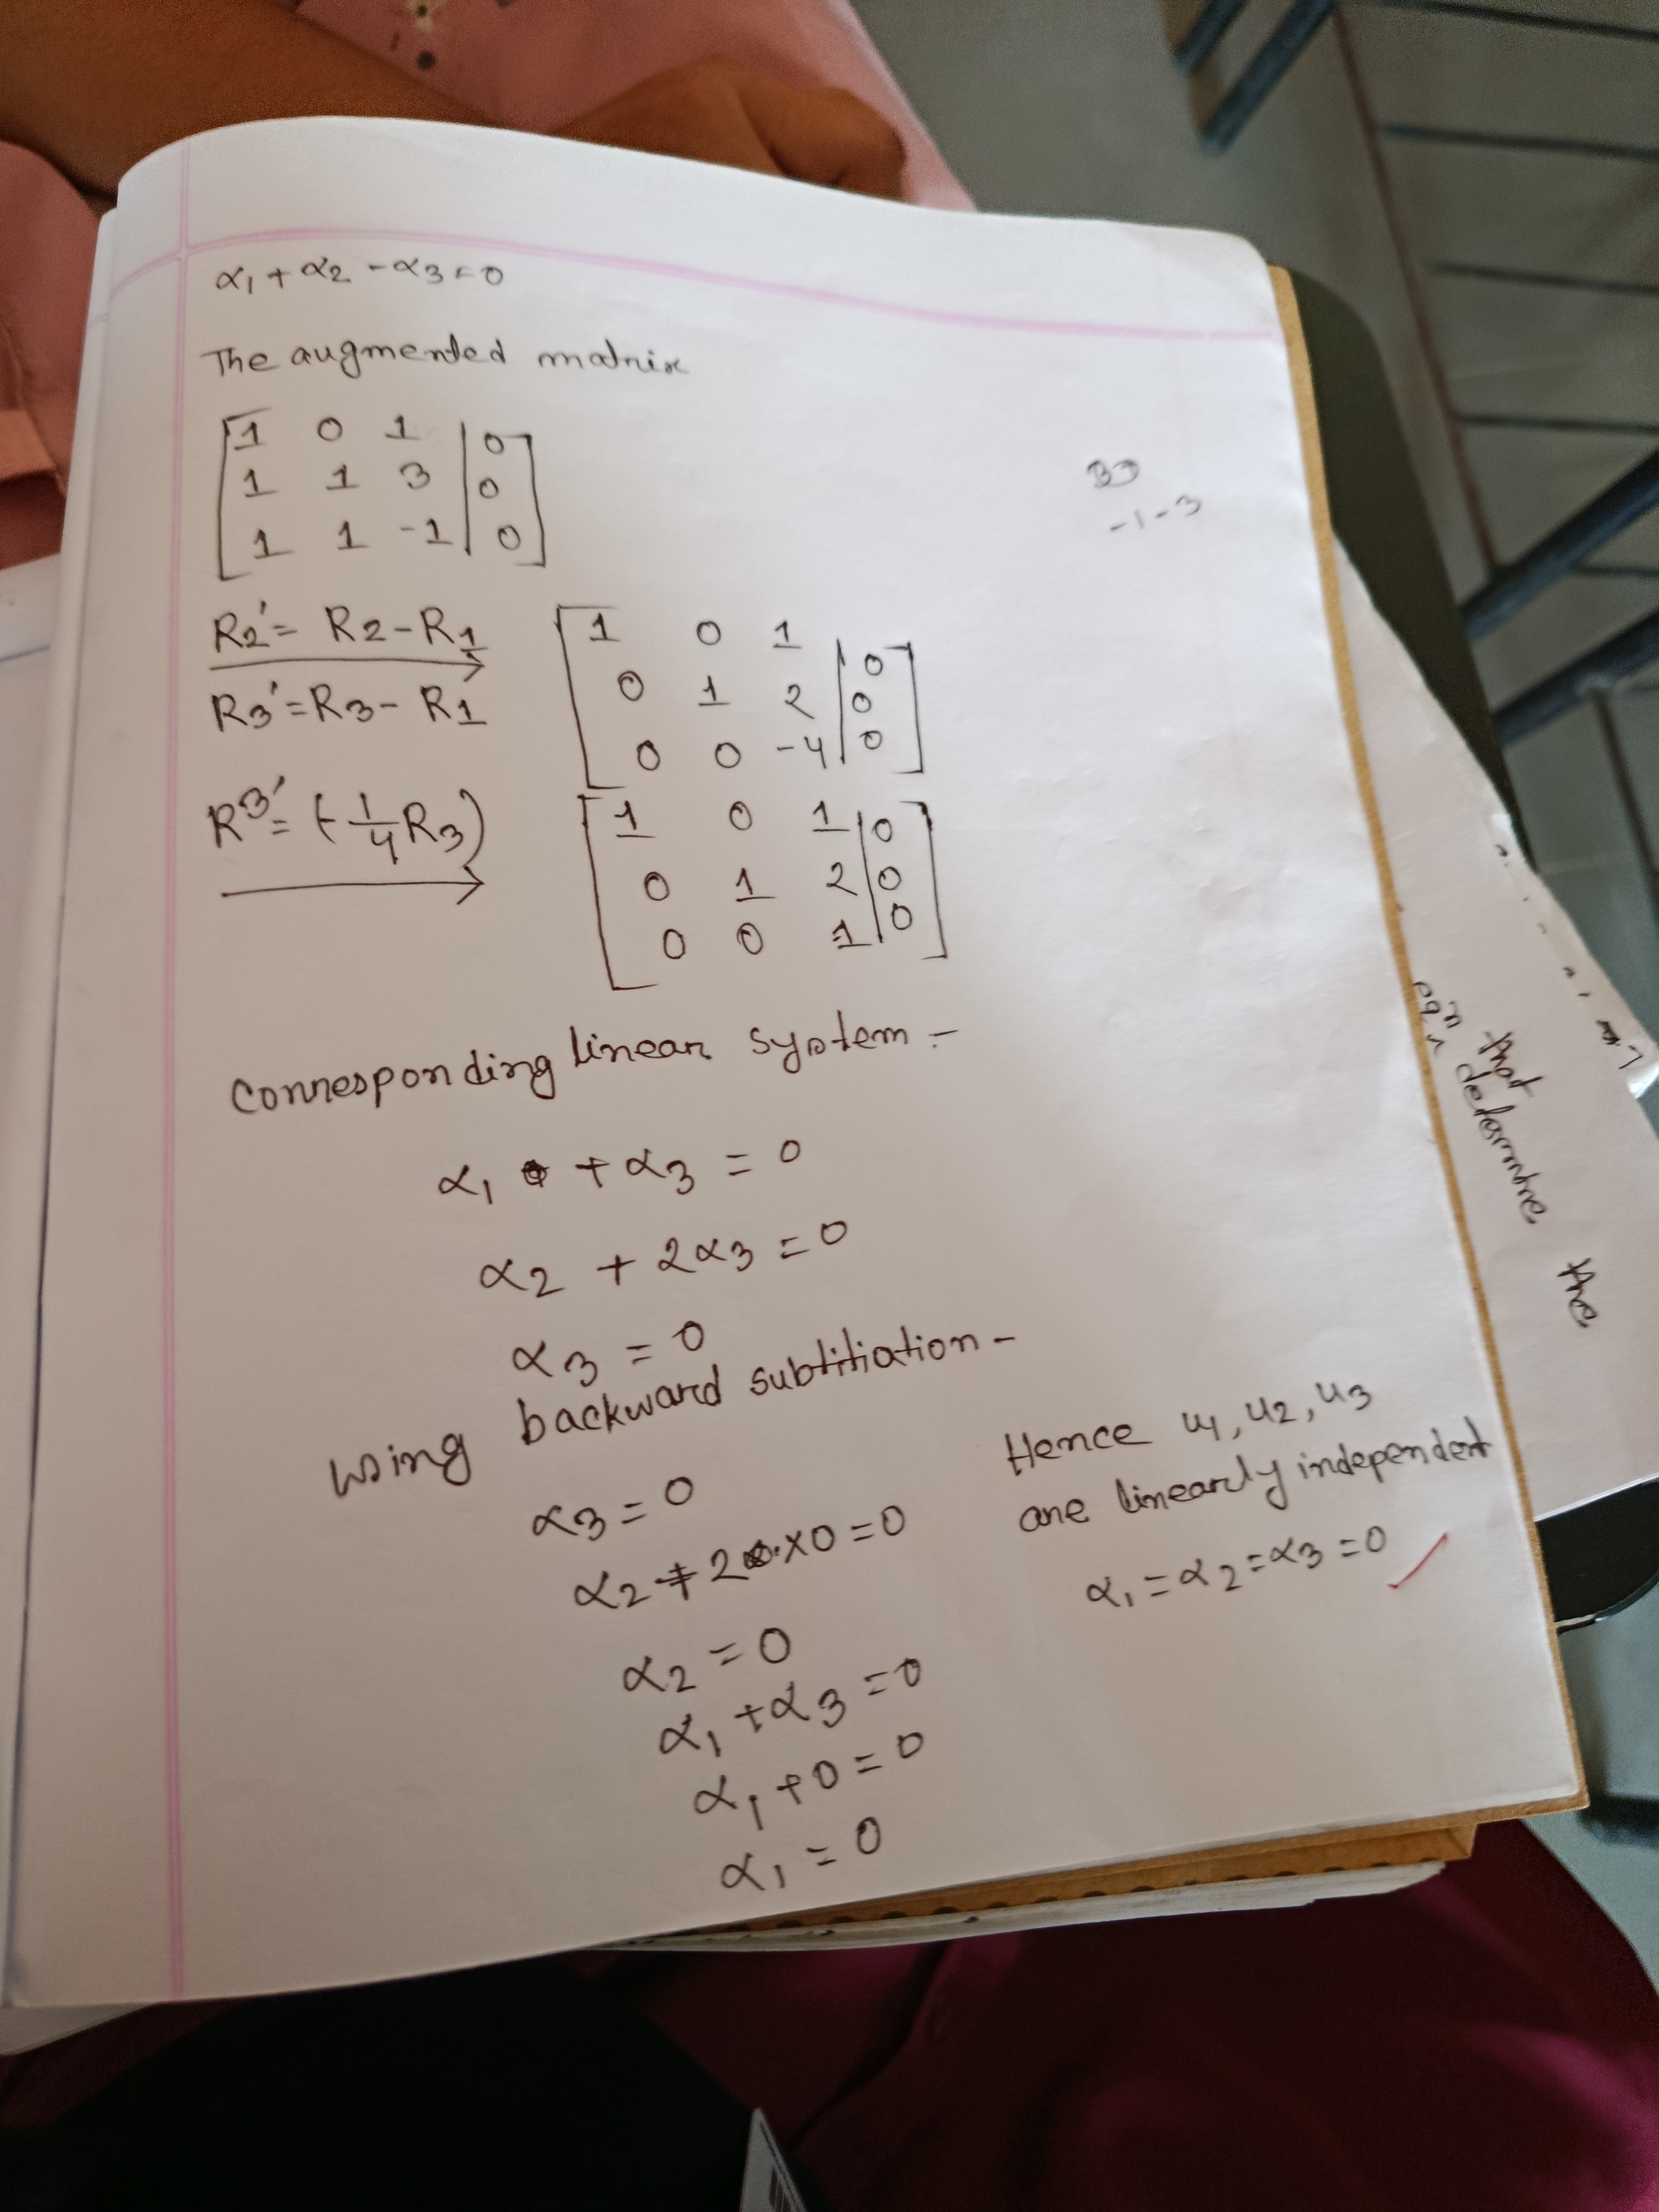 α₁ + α₂ - α₃ = 0
The augmented matrix
[1 0 1 | 0]
[1 1 3 | 0]
[1 1 -1 | 0]
-1-3
R₂' = R₂ - R₁
R₃' = R₃ - R₁
[1 0 1 | 0]
[0 1 2 | 0]
[0 0 -4 | 0]
R₃' = (-1/4 R₃)
[1 0 1 | 0]
[0 1 2 | 0]
[0 0 1 | 0]
Corresponding linear system -
α₁ + α₃ = 0
α₂ + 2α₃ = 0
α₃ = 0
using backward subtitiation -
α₃ = 0
α₂ + 2 × 0 = 0
α₂ = 0
α₁ + α₃ = 0
α₁ + 0 = 0
α₁ = 0
Hence u₁, u₂, u₃
are linearly independent
α₁ = α₂ = α₃ = 0
that
determine
the